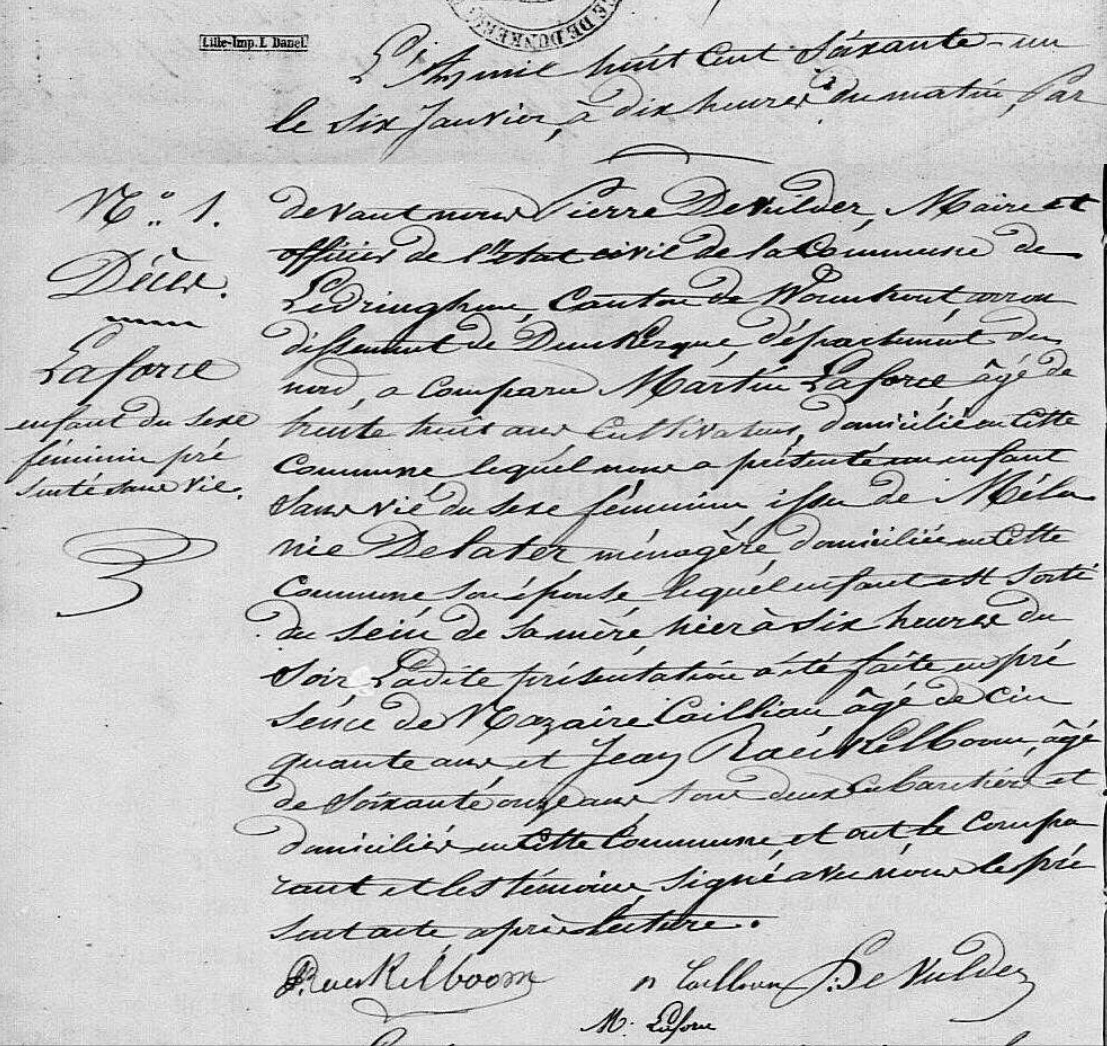 E DE DUNKERQ
Lille-Imp. L. Danel.
L'An mil huit cent soixante-un
le six Janvier, à dix heures du matin, Par
N° 1.
Décès.
Laforce
enfant du sexe
féminin pré
senté sans vie.
devant nous Pierre DeVulder, Maire et
officier de l'état civil de la Commune de
Ledringhem, Canton de Wormhout arron
dissement de Dunkerque département du
nord, a comparu Martin Laforce âgé de
trente huit ans Cultivateur, domicilié en cette
Commune, lequel nous a présenté un enfant
sans vie du sexe féminin, issu de Méla
nie Delater ménagère, domiciliée en cette
Commune son épouse lequel enfant est sorti
du sein de sa mère, hier à six heures du
soir Ladite présentation a été faite en pré
sence de Nazaire Cailliau âgé de cin
quante ans et Jean Raeckelboom, âgé
de soixante onze ans tous deux Cabaretiers et
domiciliés en cette Commune et ont le compa
rant et les témoins signé avec nous le pré
sent acte après lecture.
Raeckelboom n Cailliau P. De Vulder
M. Laforce